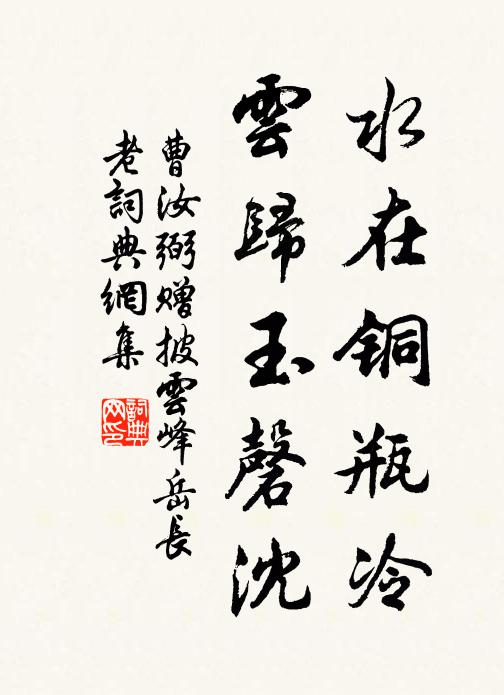 水在銅瓶冷
雲歸玉磬沈
曹汝弼贈披雲峰岳長
老詞典網集
詞典网印